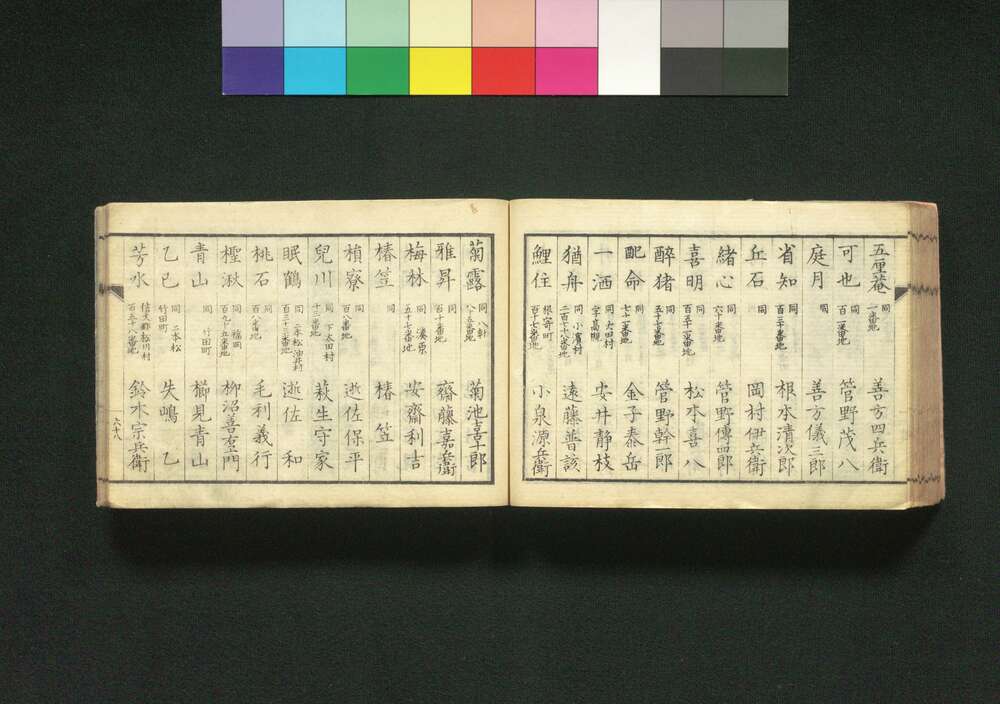 五厘菴 同 一番地 善方四兵衛
可也 同 百二番地 管野茂八
庭月 同 善方儀三郎
省知 同 百三十番地 根本清次郎
丘石 同 岡村伊兵衛
緒心 同 六十番地 管野傳四郎
喜明 同 百五十二番地 松本喜八
醉猪 同 五十七番地 管野幹三郎
配命 同 七十二番地 金子泰岳
一洒 同 太田村 字高槻 安井静枝
猶舟 同 小濱村 二百十六番地 遠藤普該
鯉住 根寄町 百十七番地 小泉源兵衛
菊露 同 八軒 八十五番地 菊池喜十郎
雅昇 同 百十番地 齋藤嘉兵衛
梅林 同 湊栗 五十七番地 安齋利吉
椿笠 同 椿笠
槓寮 同 百八番地 逝佐保平
兒川 同 下太田村 十三番地 萩生守家
眠鶴 同 二本松油井村 百三十三番地 逝佐和
桃石 同 百八番地 毛利義行
樫湫 同 福岡 百九十五番地 柳沼善右エ門
青山 同 竹田町 櫛見青山
乙巳 同 二本松 竹田町 失鳴乙
芳水 信夫郡松川村 百五十八番地 鈴木宗兵衛
六十八